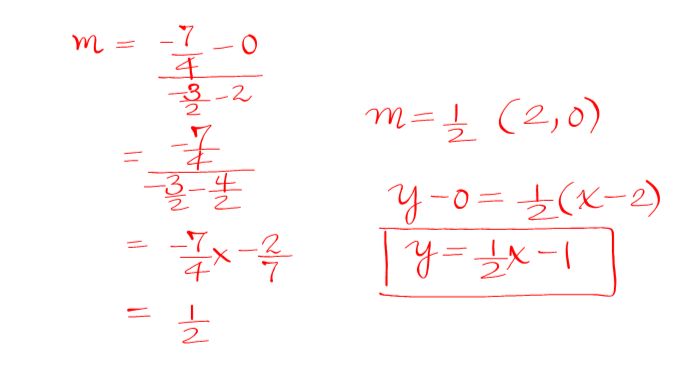 m = (-7/4 - 0)/(-3/2 - 2)
= (-7/4)/(-3/2 - 4/2)
= -7/4 x -2/7
= 1/2
m = 1/2 (2,0)
y - 0 = 1/2(x - 2)
y = 1/2x - 1